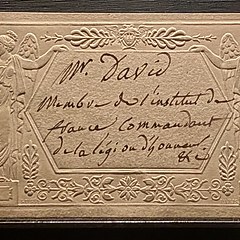 Mr. David
Membre de l'institut de
france Commandant
de la légion d'honneur
&c